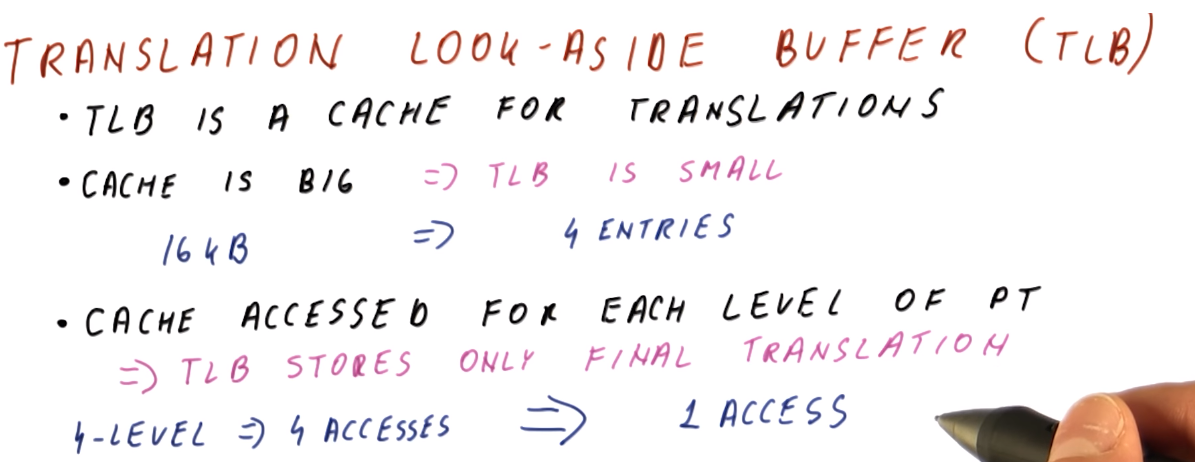 TRANSLATION LOOK-ASIDE BUFFER (TLB)
• TLB IS A CACHE FOR TRANSLATIONS
• CACHE IS BIG => TLB IS SMALL
16 kB => 4 ENTRIES
• CACHE ACCESSED FOR EACH LEVEL OF PT
=> TLB STORES ONLY FINAL TRANSLATION
4-LEVEL => 4 ACCESSES => 1 ACCESS